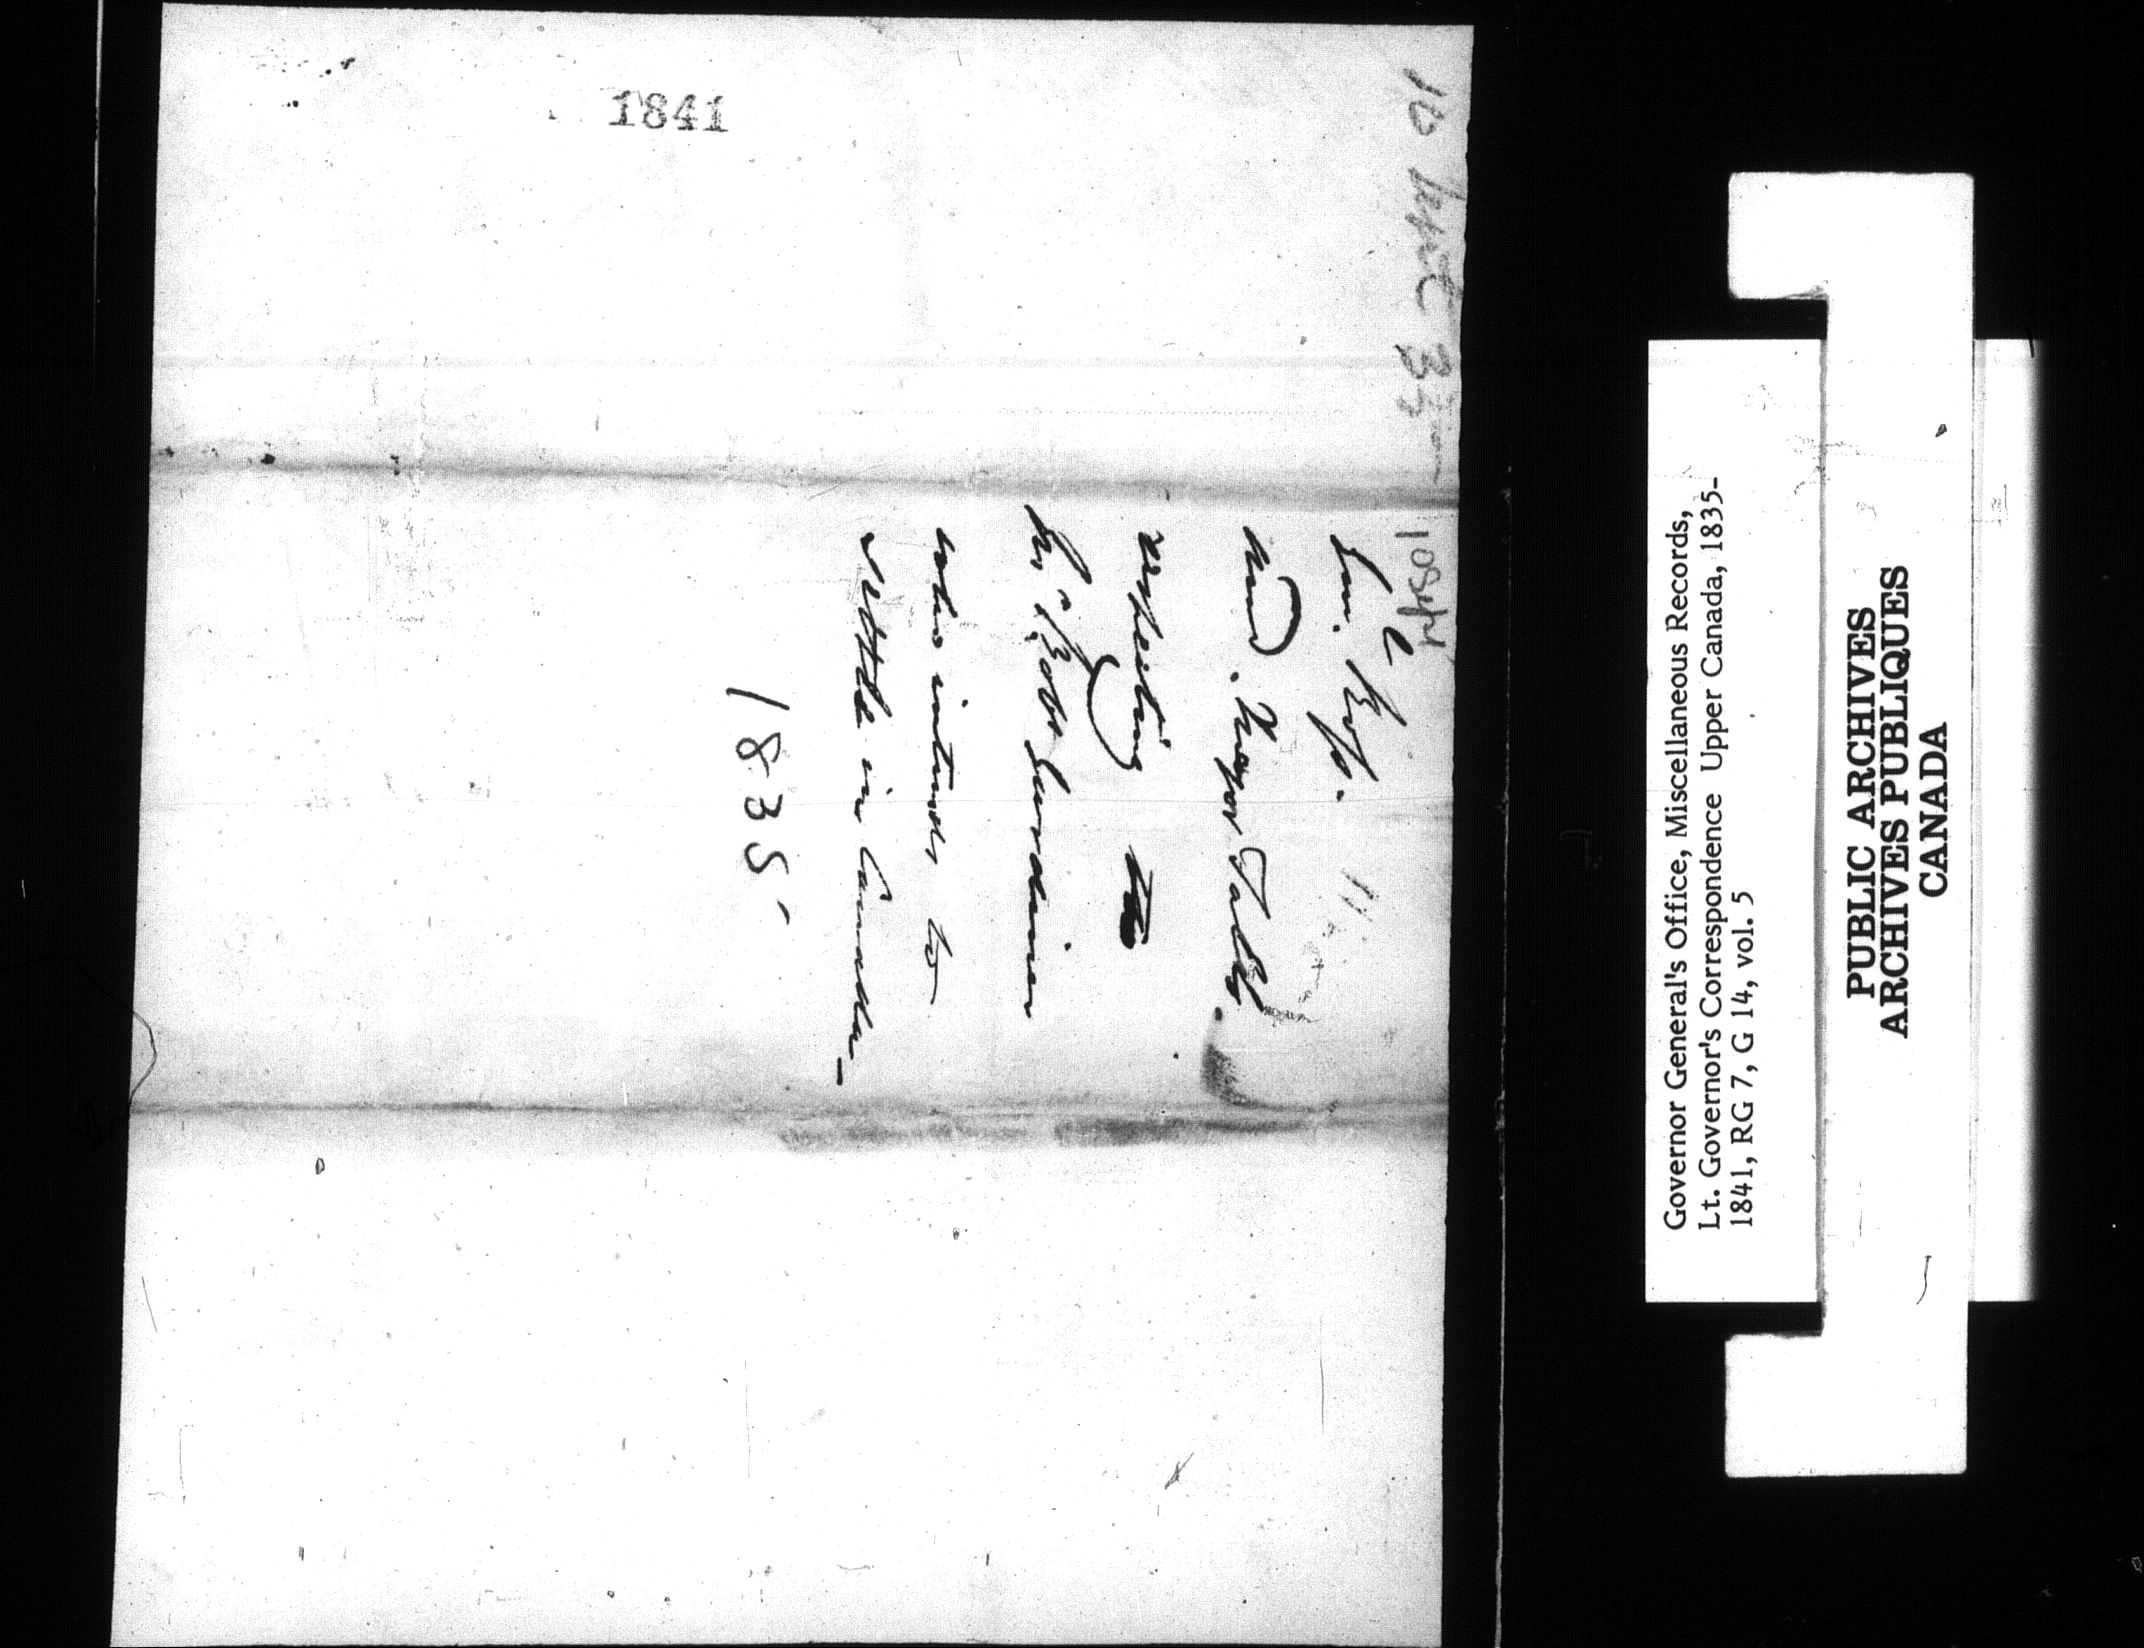 1841
10 Sept 35
10844
and Major Tabb
respecting
Sir Robt
who intends to
settle in Canada —
1835
Governor General's Office, Miscellaneous Records,
Lt. Governor's Correspondence Upper Canada, 1835-
1841, RG 7, G 14, vol. 5
PUBLIC ARCHIVES
ARCHIVES PUBLIQUES
CANADA